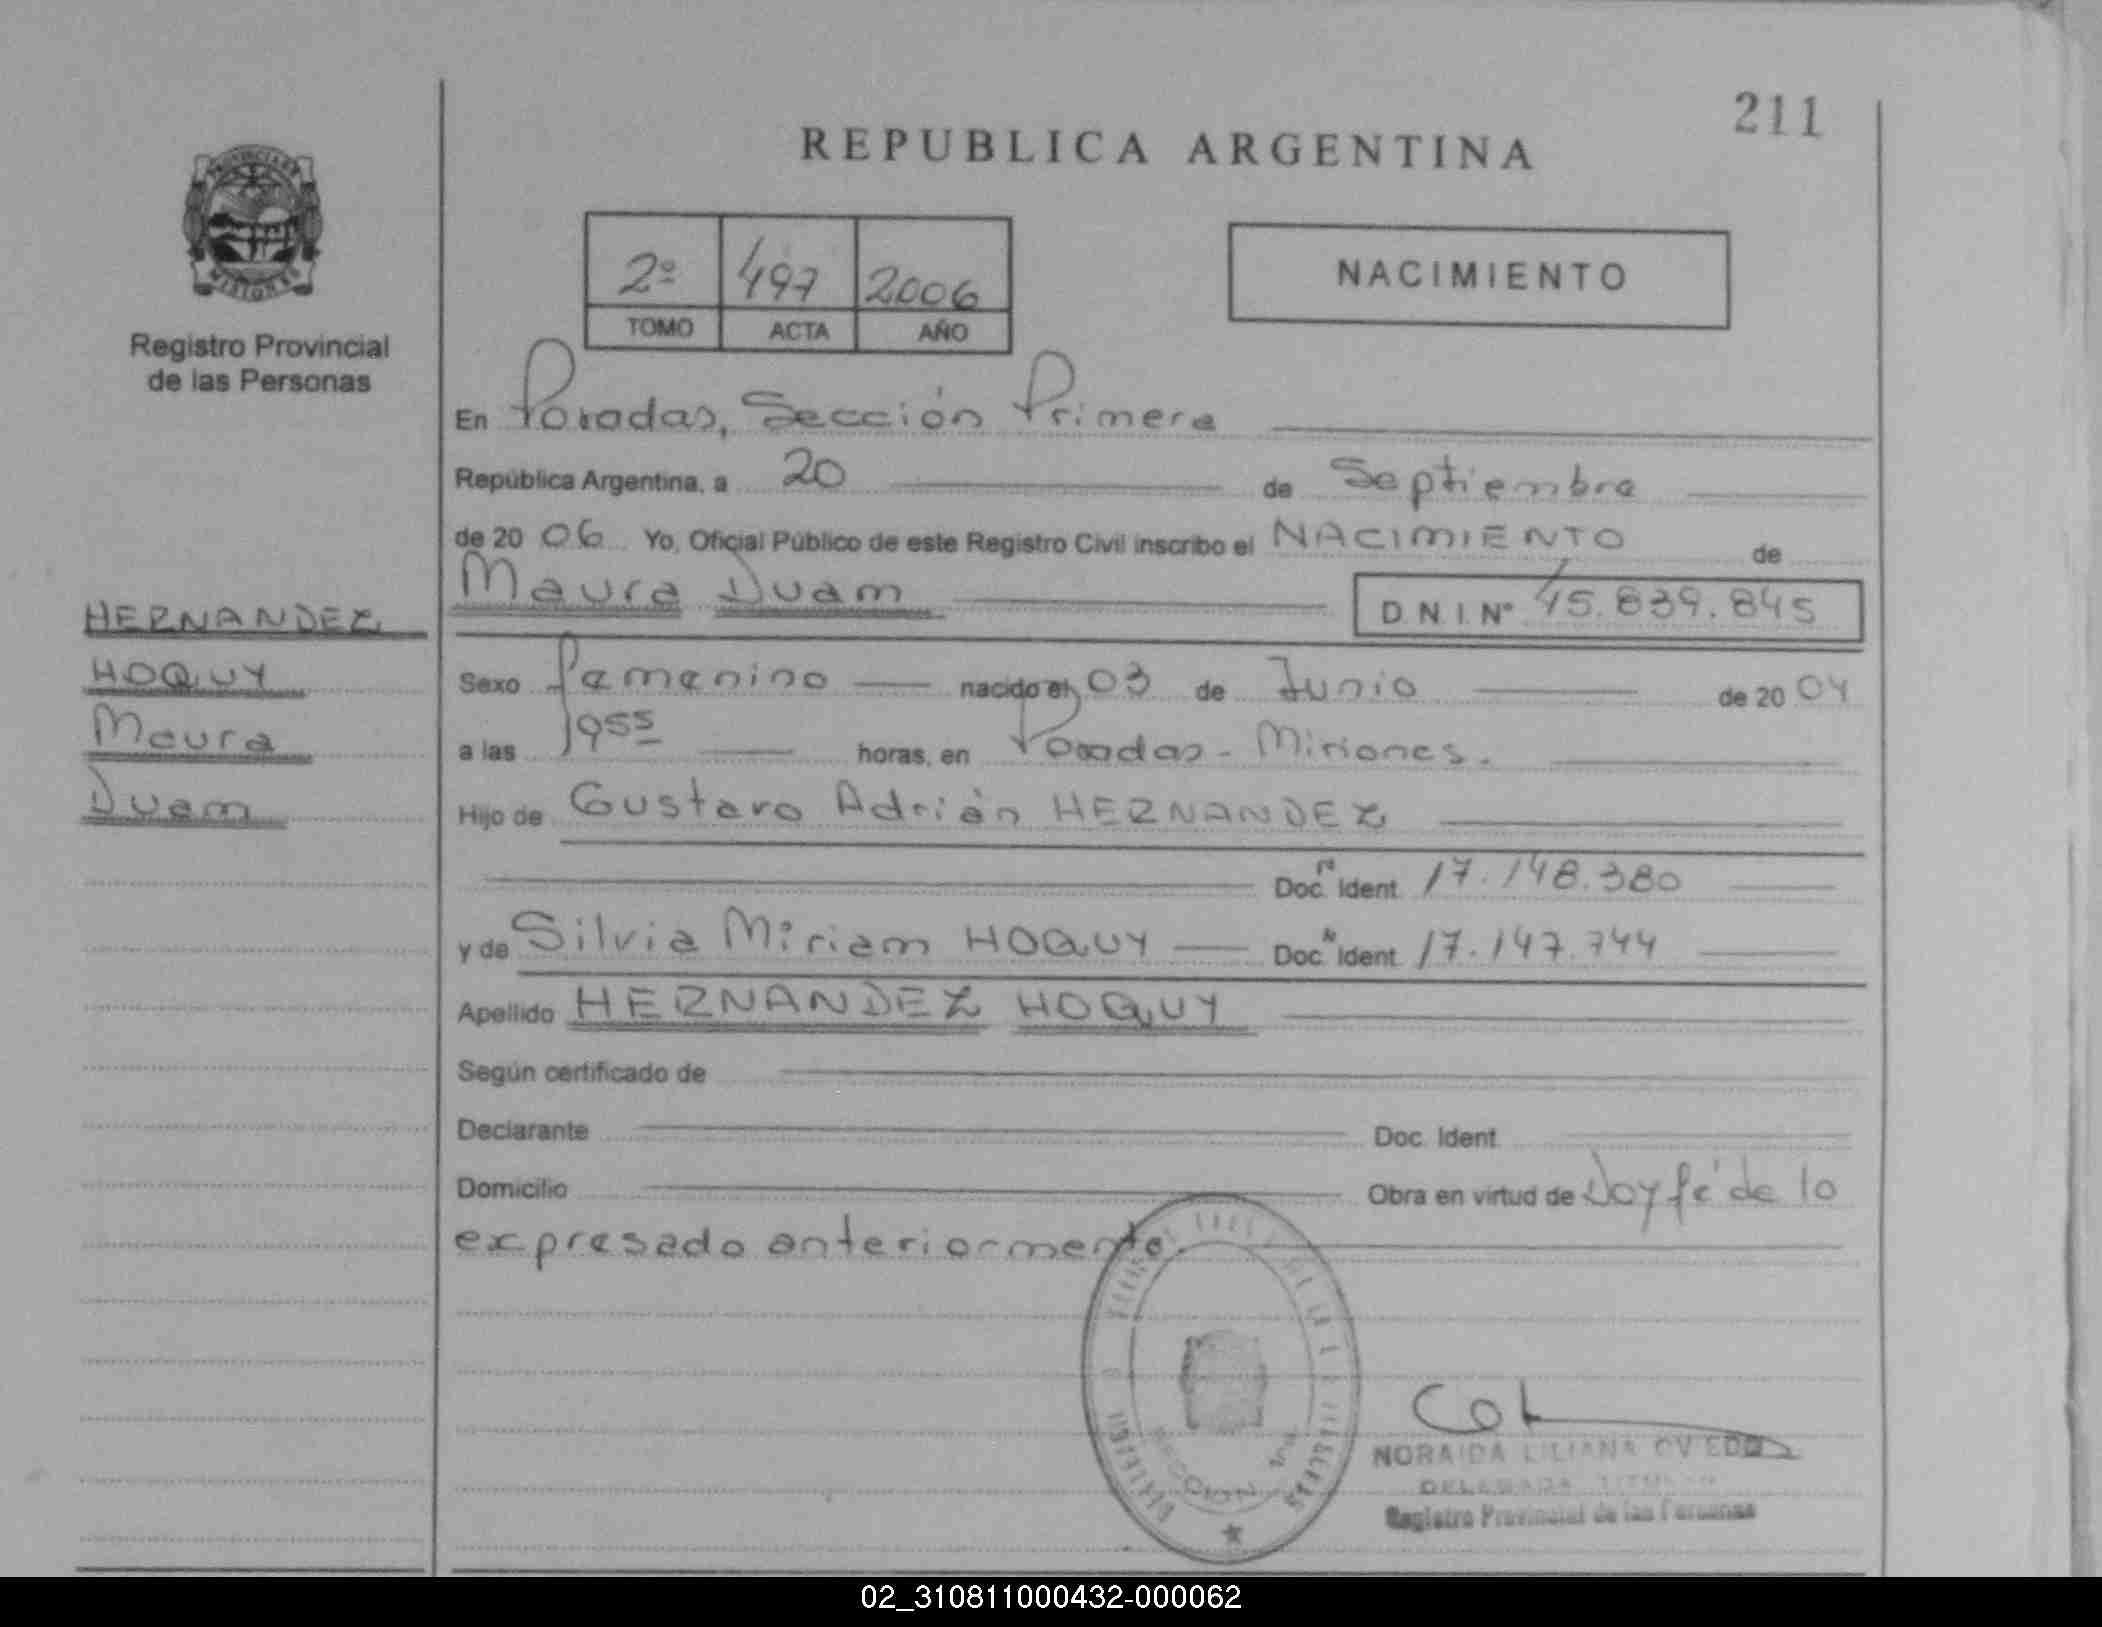 211
REPUBLICA ARGENTINA
PROVINCIA DE
MISIONES
Registro Provincial
de las Personas
2º 497 2006
TOMO ACTA AÑO
NACIMIENTO
En Posadas, Sección Primera
República Argentina, a 20 de Septiembre
de 20 06 Yo, Oficial Público de este Registro Civil inscribo el NACIMIENTO de
Maura Duam D.N.I. Nº 45.839.845
HERNANDEZ
HOQUY
Maura
Duam
Sexo femenino nacido el 03 de Junio de 20 04
a las 19 55 horas, en Posadas - Misiones.
Hijo de Gustavo Adrián HERNANDEZ
Doc. Ident. 17.148.380
y de Silvia Miriam HOQUY Doc. Ident. 17.147.744
Apellido HERNANDEZ HOQUY
Según certificado de
Declarante Doc. Ident.
Domicilio Obra en virtud de Doy fé de lo
expresado anteriormente.
SECCION 1ra
NORAIDA LILIANA OVIEDO
DELEGADA TITULAR
Registro Provincial de las Personas
02_310811000432-000062